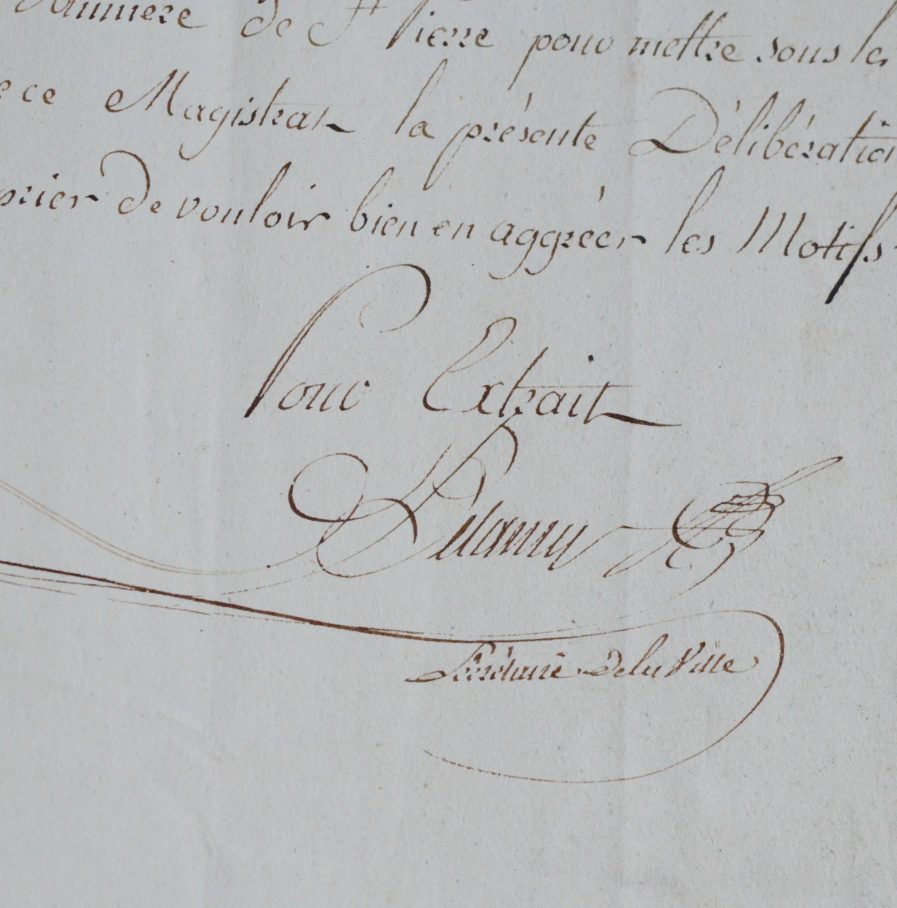 de St Pierre pour mettre sous les
ce Magistrat la présente Délibération
prier de vouloir bien en aggréer les Motifs
Pour Extrait
Secrétaire de la Ville